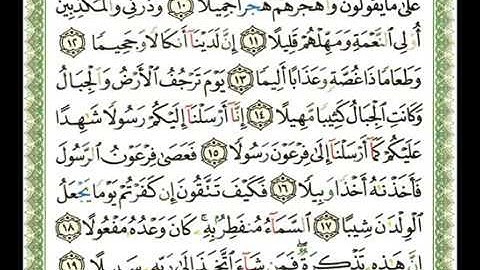 عَلَىٰ مَا يَقُولُونَ وَٱهْجُرْهُمْ هَجْرًا جَمِيلًا ١٠ وَذَرْنِي وَٱلْمُكَذِّبِينَ
أُو۟لِي ٱلنَّعْمَةِ وَمَهِّلْهُمْ قَلِيلًا ١١ إِنَّ لَدَيْنَآ أَنكَالًا وَجَحِيمًا ١٢
وَطَعَامًا ذَا غُصَّةٍ وَعَذَابًا أَلِيمًا ١٣ يَوْمَ تَرْجُفُ ٱلْأَرْضُ وَٱلْجِبَالُ
وَكَانَتِ ٱلْجِبَالُ كَثِيبًا مَّهِيلًا ١٤ إِنَّآ أَرْسَلْنَآ إِلَيْكُمْ رَسُولًا شَٰهِدًا
عَلَيْكُمْ كَمَآ أَرْسَلْنَآ إِلَىٰ فِرْعَوْنَ رَسُولًا ١٥ فَعَصَىٰ فِرْعَوْنُ ٱلرَّسُولَ
فَأَخَذْنَٰهُ أَخْذًا وَبِيلًا ١٦ فَكَيْفَ تَتَّقُونَ إِن كَفَرْتُمْ يَوْمًا يَجْعَلُ
ٱلْوِلْدَٰنَ شِيبًا ١٧ ٱلسَّمَآءُ مُنفَطِرٌۢ بِهِۦ ۚ كَانَ وَعْدُهُۥ مَفْعُولًا ١٨
إِنَّ هَٰذِهِۦ تَذْكِرَةٌ ۖ فَمَن شَآءَ ٱتَّخَذَ إِلَىٰ رَبِّهِۦ سَبِيلًا ١٩